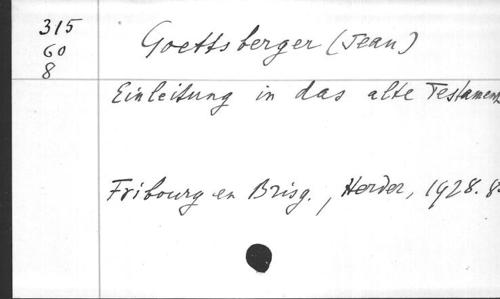 315
60
8
Goettsberger (Jean)
Einleitung in das alte Testament
Fribourg en Brisg., Herder, 1928. 8